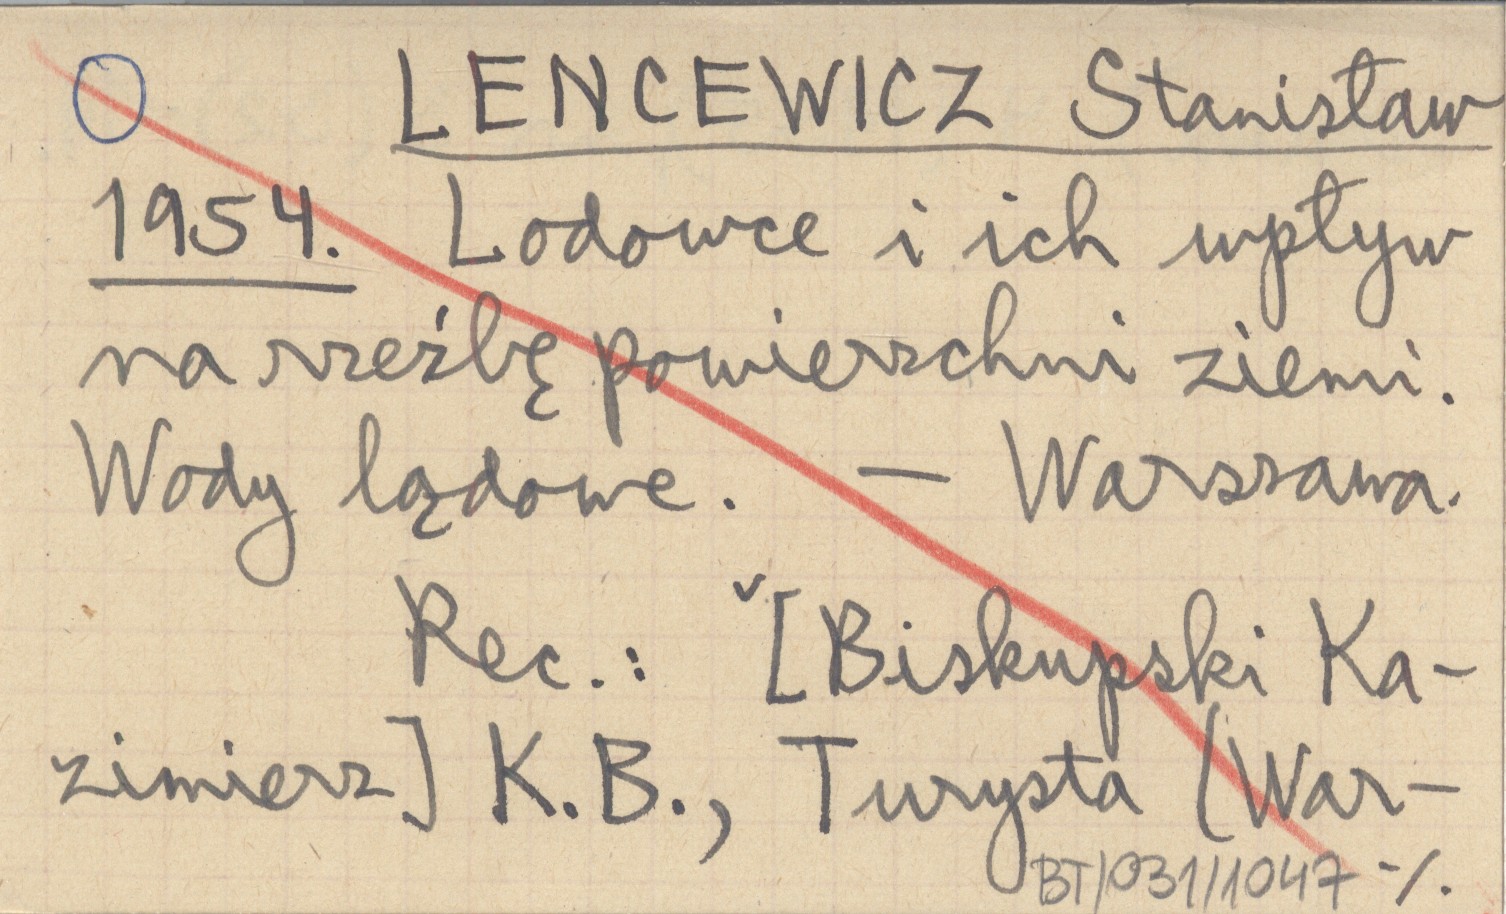 LENCEWICZ Stanisław
1954. Lodowce i ich wpływ
na rzeźbę powierzchni ziemi.
Wody lądowe. — Warszawa.
Rec.: ˇ[Biskupski Ka-
zimierz] K.B., Turysta (War-
BT/031/1047 -/.